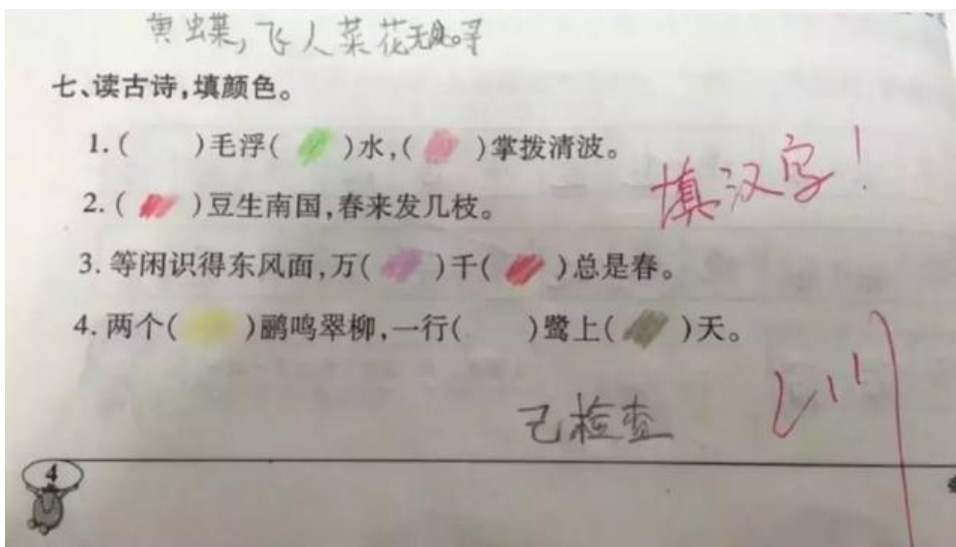 黄蝶,飞人菜花无处寻
七、读古诗,填颜色。
1.( )毛浮( )水,( )掌拨清波。
填汉字!
2.( )豆生南国,春来发几枝。
3. 等闲识得东风面,万( )千( )总是春。
4. 两个( )鹂鸣翠柳,一行( )鹭上( )天。
己检查
4